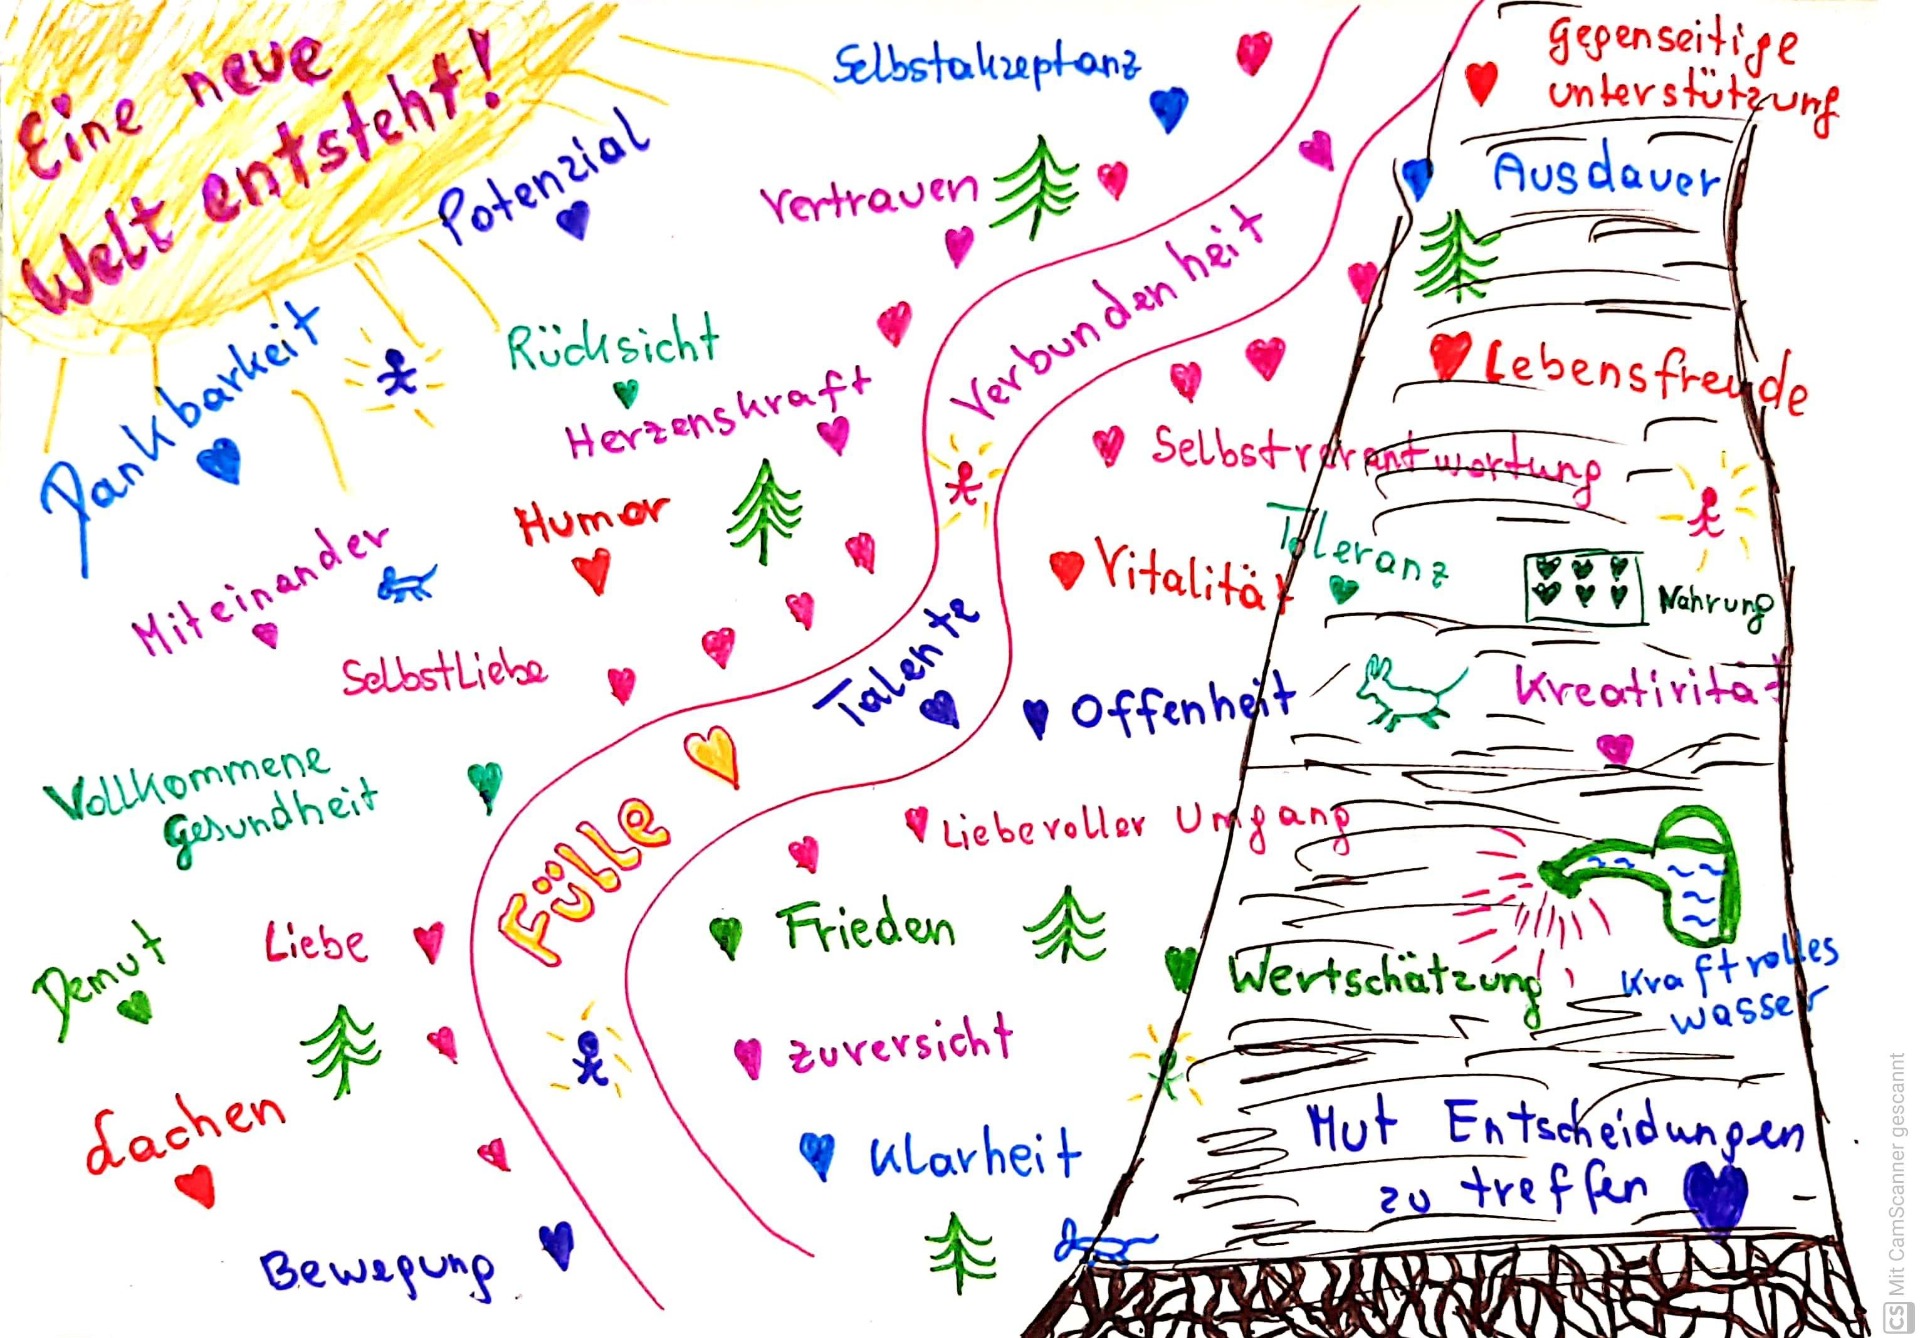 Eine neue
Welt entsteht!
Selbstakzeptanz
Gegenseitige
unterstützung
Potenzial
Vertrauen
Ausdauer
Verbundenheit
Dankbarkeit
Rücksicht
Herzenskraft
Lebensfreude
Selbstverantwortung
Humor
Miteinander
Toleranz
Vitalität
Nahrung
SelbstLiebe
Talente
Offenheit
Kreativität
Vollkommene
gesundheit
Fülle
Liebevoller Umgang
Liebe
Frieden
Wertschätzung
Kraftvolles
wasser
Demut
zuversicht
Lachen
Klarheit
Mut Entscheidungen
zu treffen
Bewegung
CS Mit CamScanner gescannt